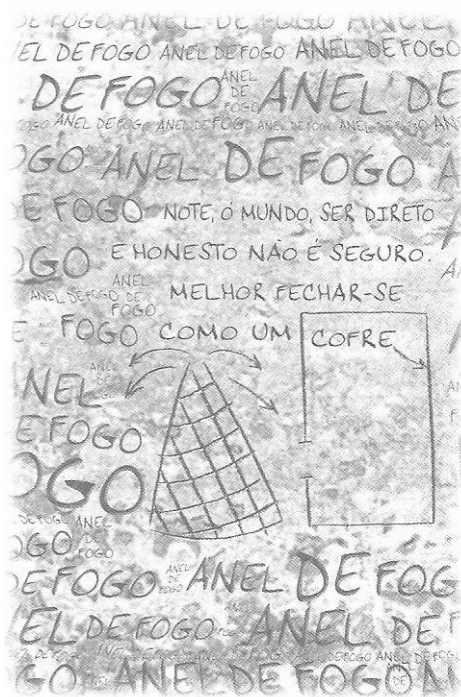 DE FOGO ANEL DE FOGO ANEL
EL DE FOGO ANEL DE FOGO ANEL DE FOGO
DE FOGO ANEL DE FOGO ANEL DE
OGO ANEL DE FOGO ANEL DE FOGO ANEL DE FOGO ANEL DE FOGO AN
OGO ANEL DE FOGO A
E FOGO NOTE, Ó MUNDO, SER DIRETO
OGO E HONESTO NÃO É SEGURO.
ANEL DE FOGO ANEL DE FOGO MELHOR FECHAR-SE
E FOGO COMO UM COFRE
NEL
E FOGO
OGO
DE FOGO ANEL DE FOGO
OGO
E FOGO ANEL DE FOGO ANEL DE FOG
EL DE FOGO ANEL DE F
GO ANEL DE FOGO A